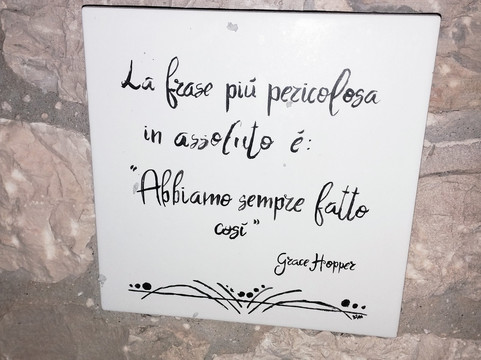 La frase piú pericolosa
in assoluto é:
"Abbiamo sempre fatto
cosí"
Grace Hopper